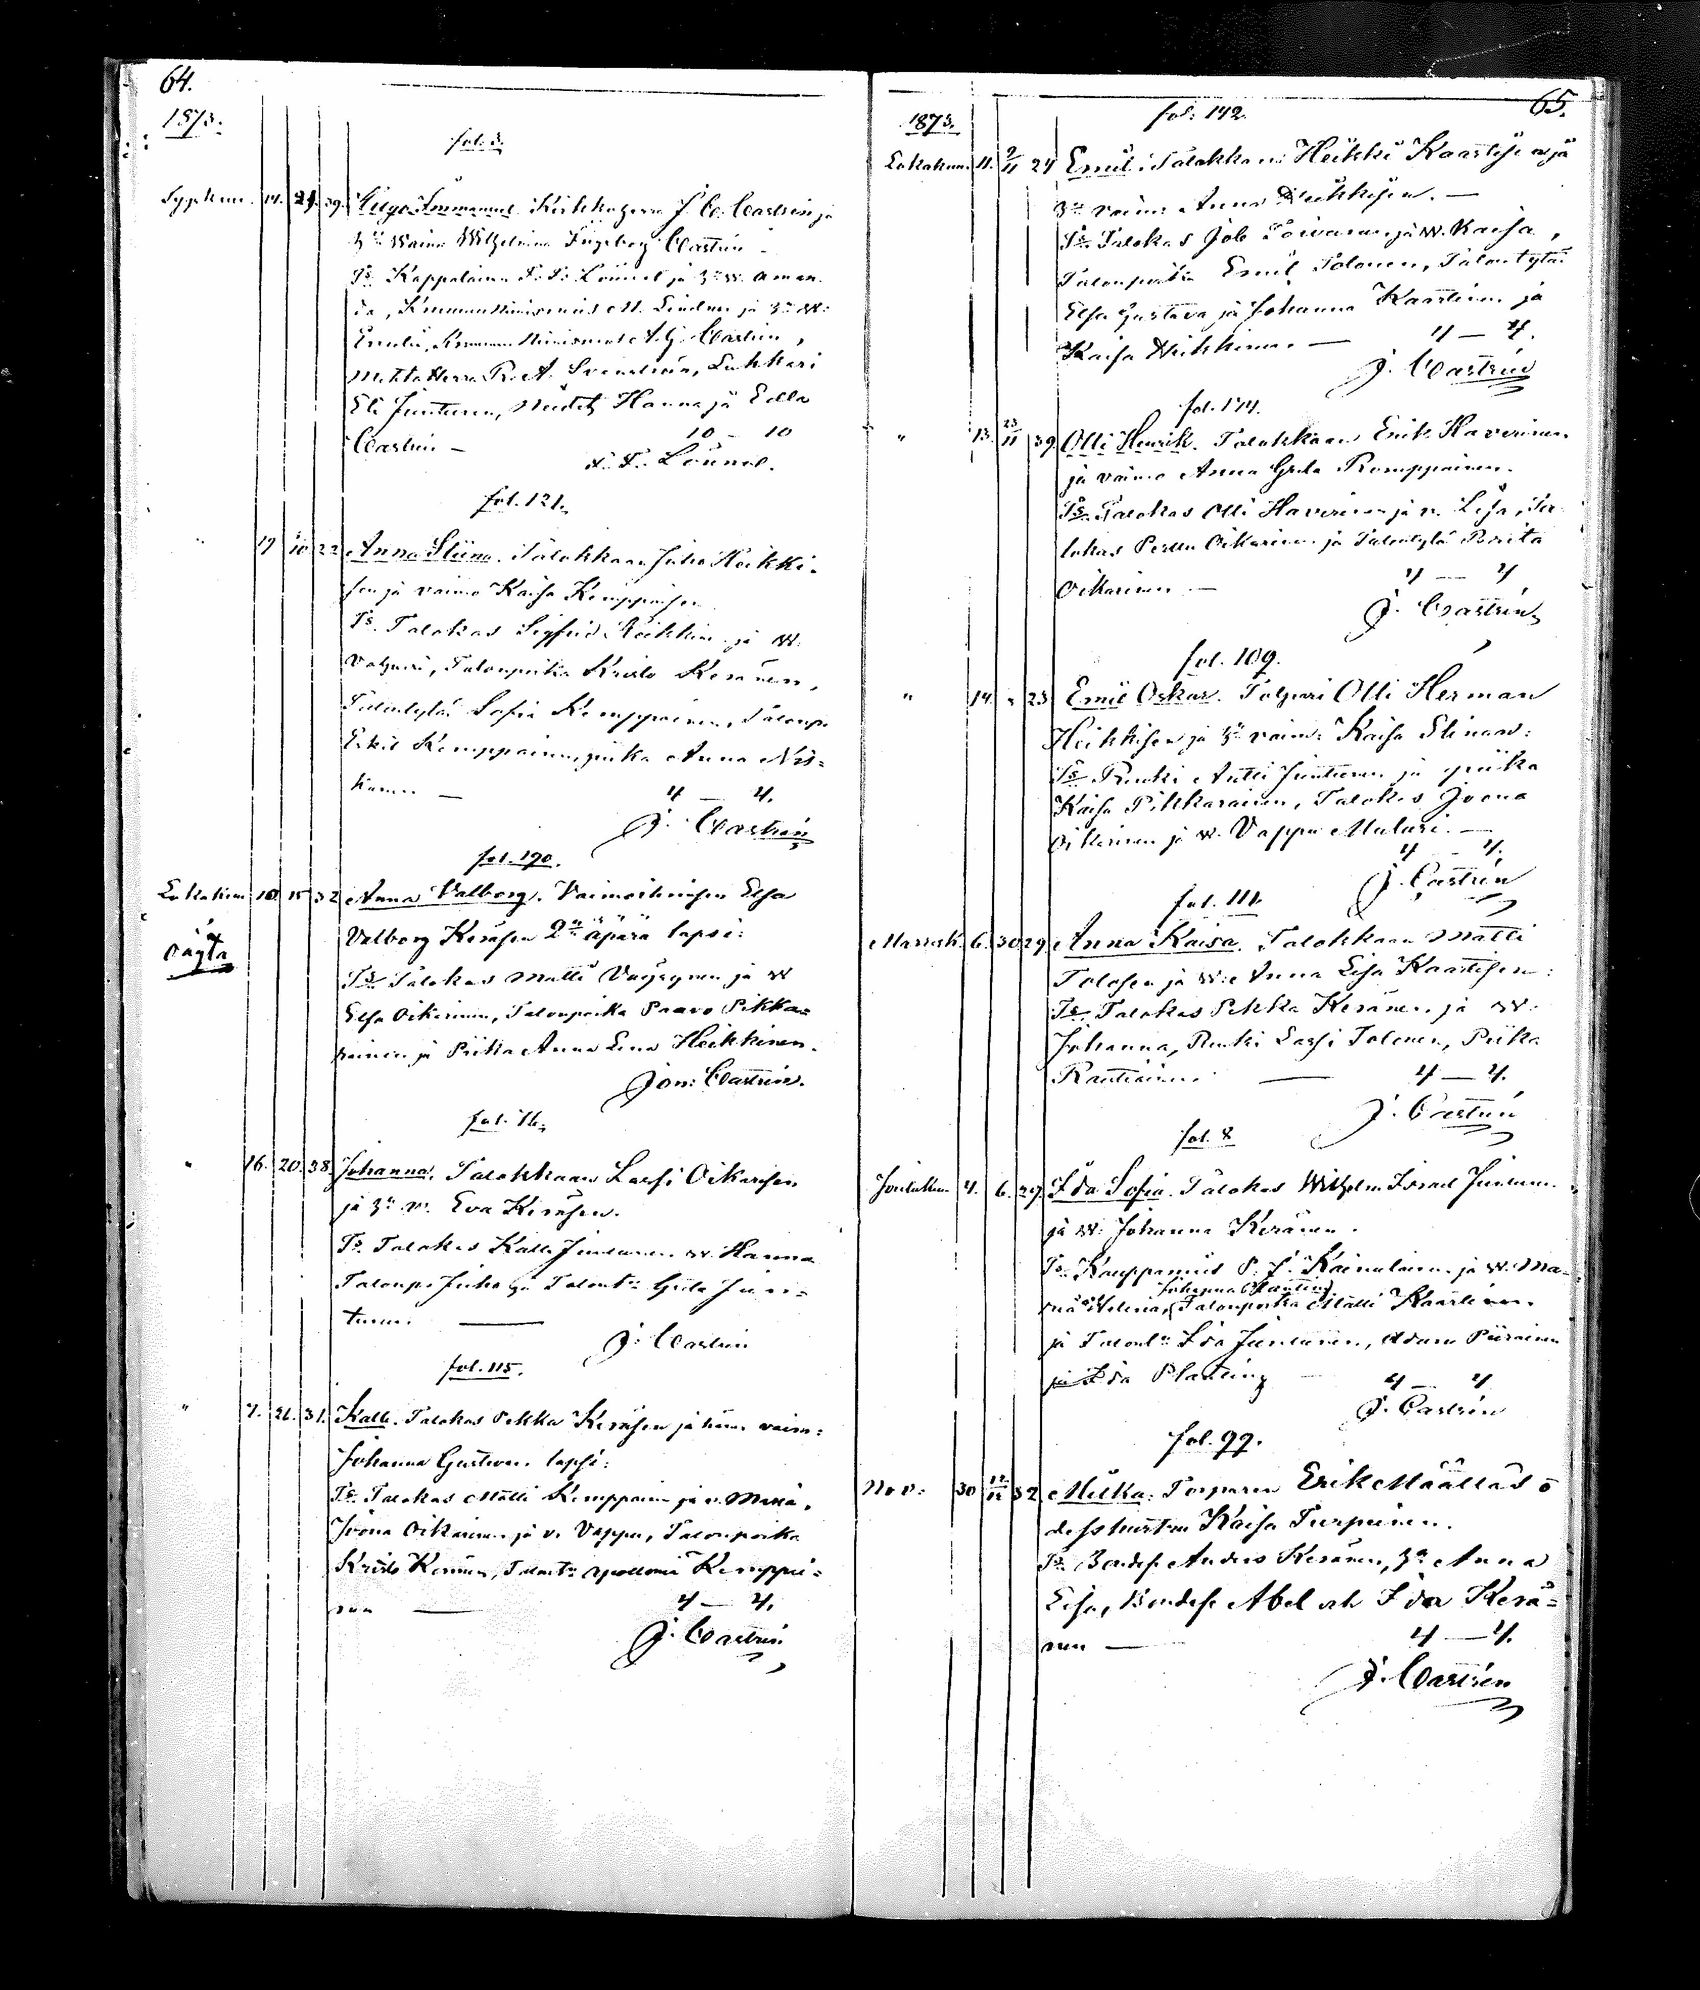 64.
1873.
fol. 3.
Syyskuu. 14. 24. 39. Hugo Immanuel. Kirkkoherra J. W. Castrén ja
h:n Waimo Wilhelmina Ingeborg Castrén
Ts. Kappalainen F. F. Lönnrot ja h:n w. Aman
da, Kruununnimismies M. Lindner ja h:n w:
Emelie, Kruunun Nimismies A. G. Castrén,
Metsäherra R. A. Svendelin, Lukkari
Eli Juntunen, Neidet Hanna ja Edla
Castrén — 10 — 10
F. F. Lönnrot.
fol. 121.
" 17 10 22 Anna Stiina. Talokkaan Juho Heikki-
sen ja vaimo Kaisa Kemppaisen
Ts. Talokas Sigfrid Heikkinen ja w.
Valpuri, Talonpoika Kristo Keränen,
Talontytär Sofia Kemppainen, Talonp.
Erkki Kemppainen, piika Anna Nis-
kanen — 4 — 4.
J. Castrén
fol. 190.
Lokakuu 10. 15 32 Anna Valborg. Vaimoihmisen Elsa
Valborg Keräsen 2:n äpärä lapsi:
oägta
Ts. Talokas Matti Väyrynen ja w
Elsa Oikarinen, Talonpoika Paavo Pikka-
rainen ja Piika Anna Lena Heikkinen.
Jon: Castrén.
fol. 16.
" 16. 20. 38. Johanna. Talokkaan Lassi Oikarisen
ja h:n w. Eva Keräsen.
Ts. Talokas Kalle Juntunen w. Hanna
Talonp. Juho ja Talont:r Greta Jun-
tunen. —
J. Castrén
fol. 115.
" 7. 26. 31. Kalle. Talokas Pekka Keräsen ja hänen vaim:
Johanna Gustava. lapsi:
Ts. Talokas Matti Kemppainen ja v. Maria,
Joona Oikarinen ja v. Vappu, Talonpoika
Kristo Keränen, Talont:r Apollonia Kemppai-
nen — 4 — 4.
J. Castrén
65.
1873.
fol: 142.
Lokakuu. 11. 2/11 24 Emil. Talokkaan Heikki Kaartisen ja
h:n vaimo Anna Heikkisen. —
Ts. Talokas Job Toivanen ja w. Kaisa,
Talonpoika Emil Tolonen, Talontytär
Elsa Gustava ja Johanna Kaartinen ja
Kaisa Heikkinen — 4 — 4.
J. Castrén
fol. 174.
" 13. 23/11 39. Olli Henrik. Talokkaan Erik Haverinen
ja vaimo Anna Greta Romppainen.
Ts. Talokas Olli Haverinen ja v. Lisa, Ta-
lokas Perttu Oikarinen ja Talontytär Briita
Oikarinen — 4 — 4
J. Castrén
fol. 109.
" 14. " 23. Emil Oskar. Torpari Olli Herman
Heikkisen ja h:n vaimo: Kaisa Elinan:
Ts. Renki Antti Juntunen ja piika
Kaisa Pikkarainen, Talokas Joona
Oikarinen ja w. Vappu Mulari. —
4 — 4.
J. Castrén
fol. 111.
Marrask. 6. 30 29. Anna Kaisa. Talokkaan Matti
Tolosen ja w: Anna Lisa Kaartisen:
Ts. Talokas Pekka Keränen ja w:
Johanna, Renki Lassi Tolonen, Piika
Rautiainen. — 4 — 4.
J. Castrén
fol. 8
Joulukuu 4. 6. 29. Ida Sofia. Talokas Wilhelm Israel Juntunen
ja w. Johanna Keränen.
Ts. Kauppamies P. J. Kainulainen ja w: Ma-
Johanna Planting
ria Helena, Talonpoika Matti Kaartinen.
ja Talont:r Ida Juntunen, Adam Piirainen
ja Ida Planting 4 — 4
J. Castrén
fol. 99.
Nov: 30 14/12 32 Milka. Torparen Erik Määttäs o
dess hustru Kaisa Turpeinen.
Ts. Bondes. Anders Keränen, h:u Anna
Lisa, Bondes. Abel och Ida Kerä-
nen — 4 — 4.
J. Castrén